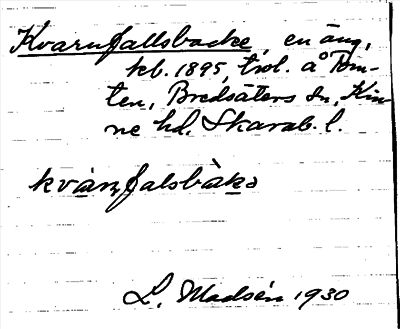 Kvarnfallsbacke, en äng,
kb. 1895, trol. å Tom-
ten, Bredsäters sn, Kin-
ne hd, Skarab. l.
kvànfalsbàkə
L. Madsén 1930